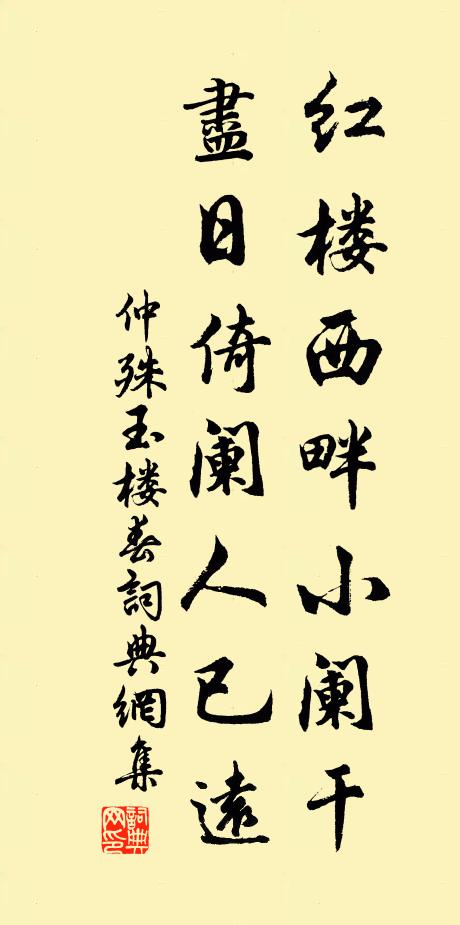 红楼西畔小阑干
盡日倚阑人已遠
仲殊玉楼春詞典網集
詞典網印